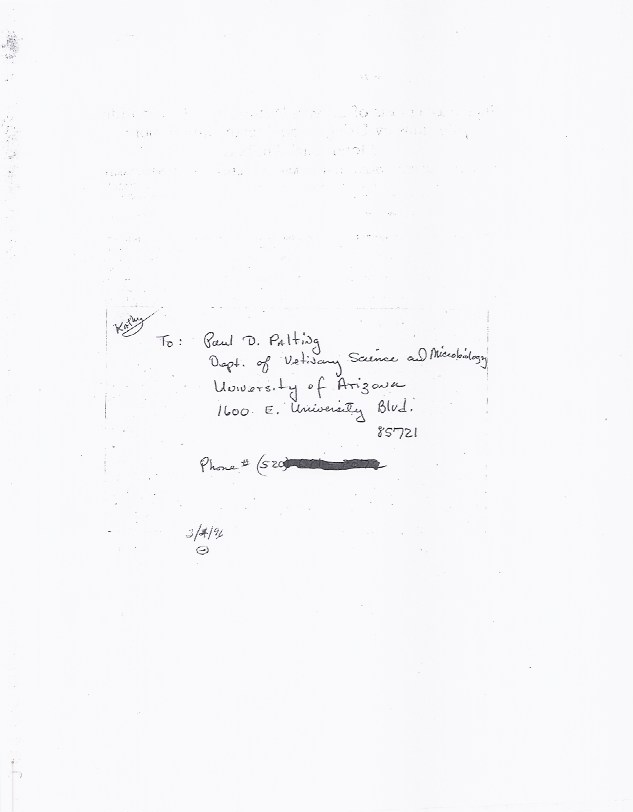 Kathy
To: Paul D. Palting
Dept. of Vetinary Science and Microbiology
University of Arizona
1600 E. University Blvd.
85721
Phone # (520)
3/4/96